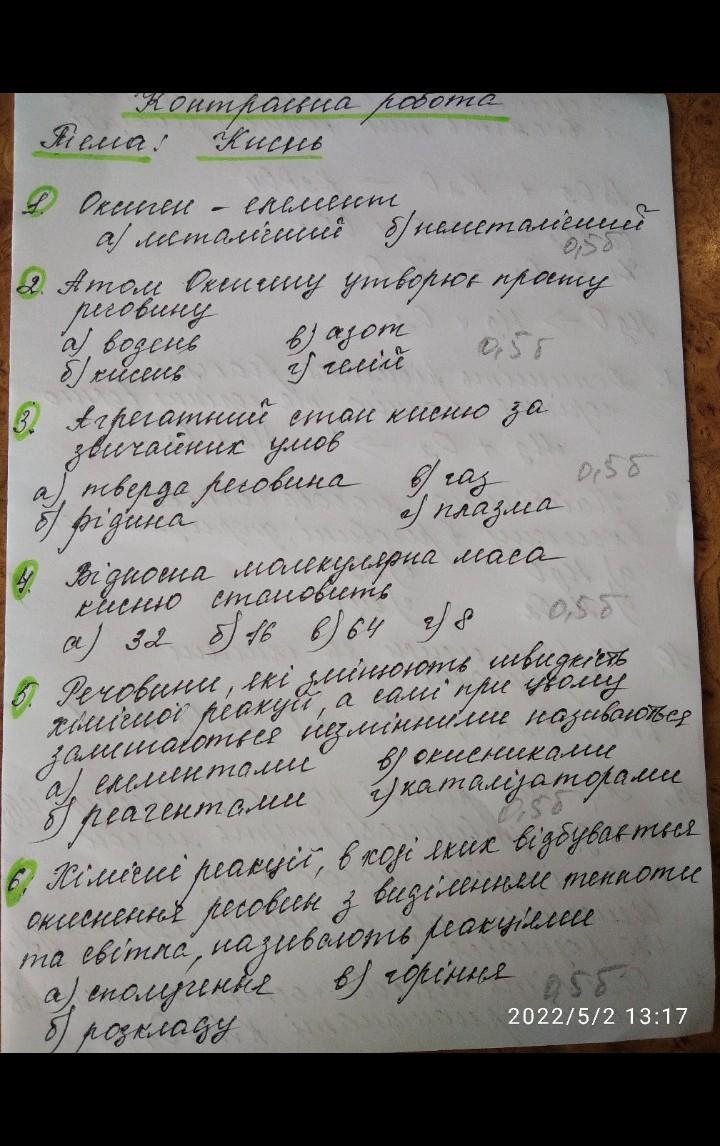 Контрольна робота
Тема: Кисень
1. Оксиген – елемент
а) металічний б) неметалічний
0,5б
2. Атом Оксигену утворює просту
речовину
а) водень в) азот
0,5б
б) кисень г) гелій
3. Агрегатний стан кисню за
звичайних умов
а) тверда речовина в) газ
0,5б
б) рідина г) плазма
4. Відносна молекулярна маса
кисню становить
0,5б
а) 32 б) 16 в) 64 г) 8
5. Речовини, які змінюють швидкість
хімічної реакції, а самі при цьому
залишаються незмінними називаються
а) елементами в) окисниками
б) реагентами г) каталізаторами
0,5б
6. Хімічні реакції, в ході яких відбувається
окиснення речовин з виділенням теплоти
та світла, називають реакціями
а) сполучення в) горіння
0,5б
б) розкладу
2022/5/2 13:17